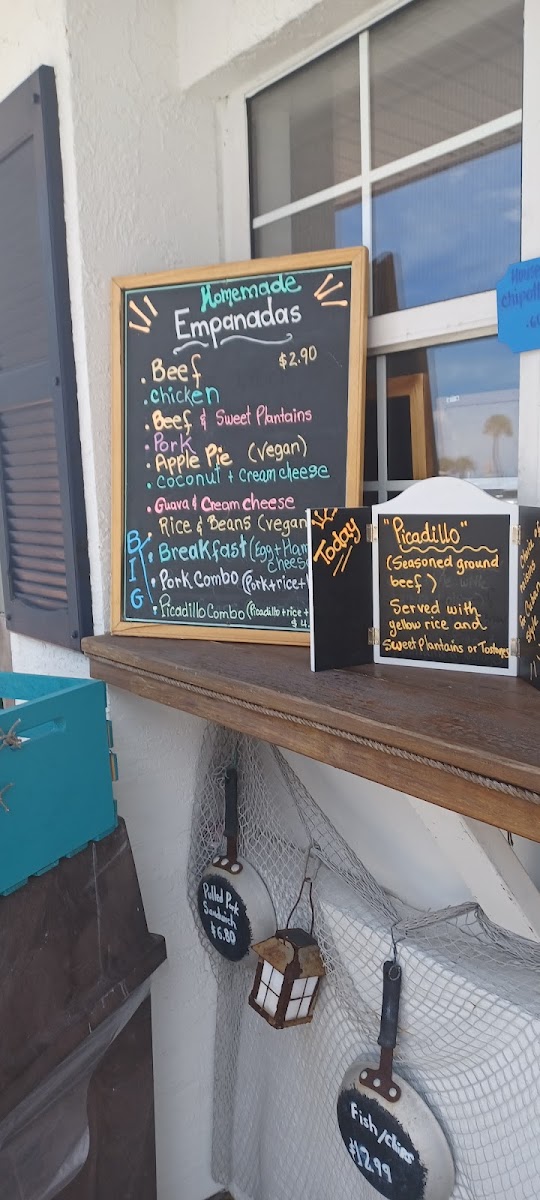 Homemade
Empanadas
. Beef $2.90
. chicken
. Beef & Sweet Plantains
. Pork
. Apple Pie (vegan)
. Coconut + Cream cheese
. Guava & Cream cheese
Rice & Beans (vegan
BIG
. Breakfast (Egg + Ham
cheese
. Pork Combo (Pork+rice+
. Picadillo Combo (Picadillo+rice+
Today
"Picadillo"
(Seasoned ground
beef)
Served with
yellow rice and
sweet Plantains or Tostones
House
chipotle
Pulled Pork
Sandwich
$6.80
Fish/chips
$12.99